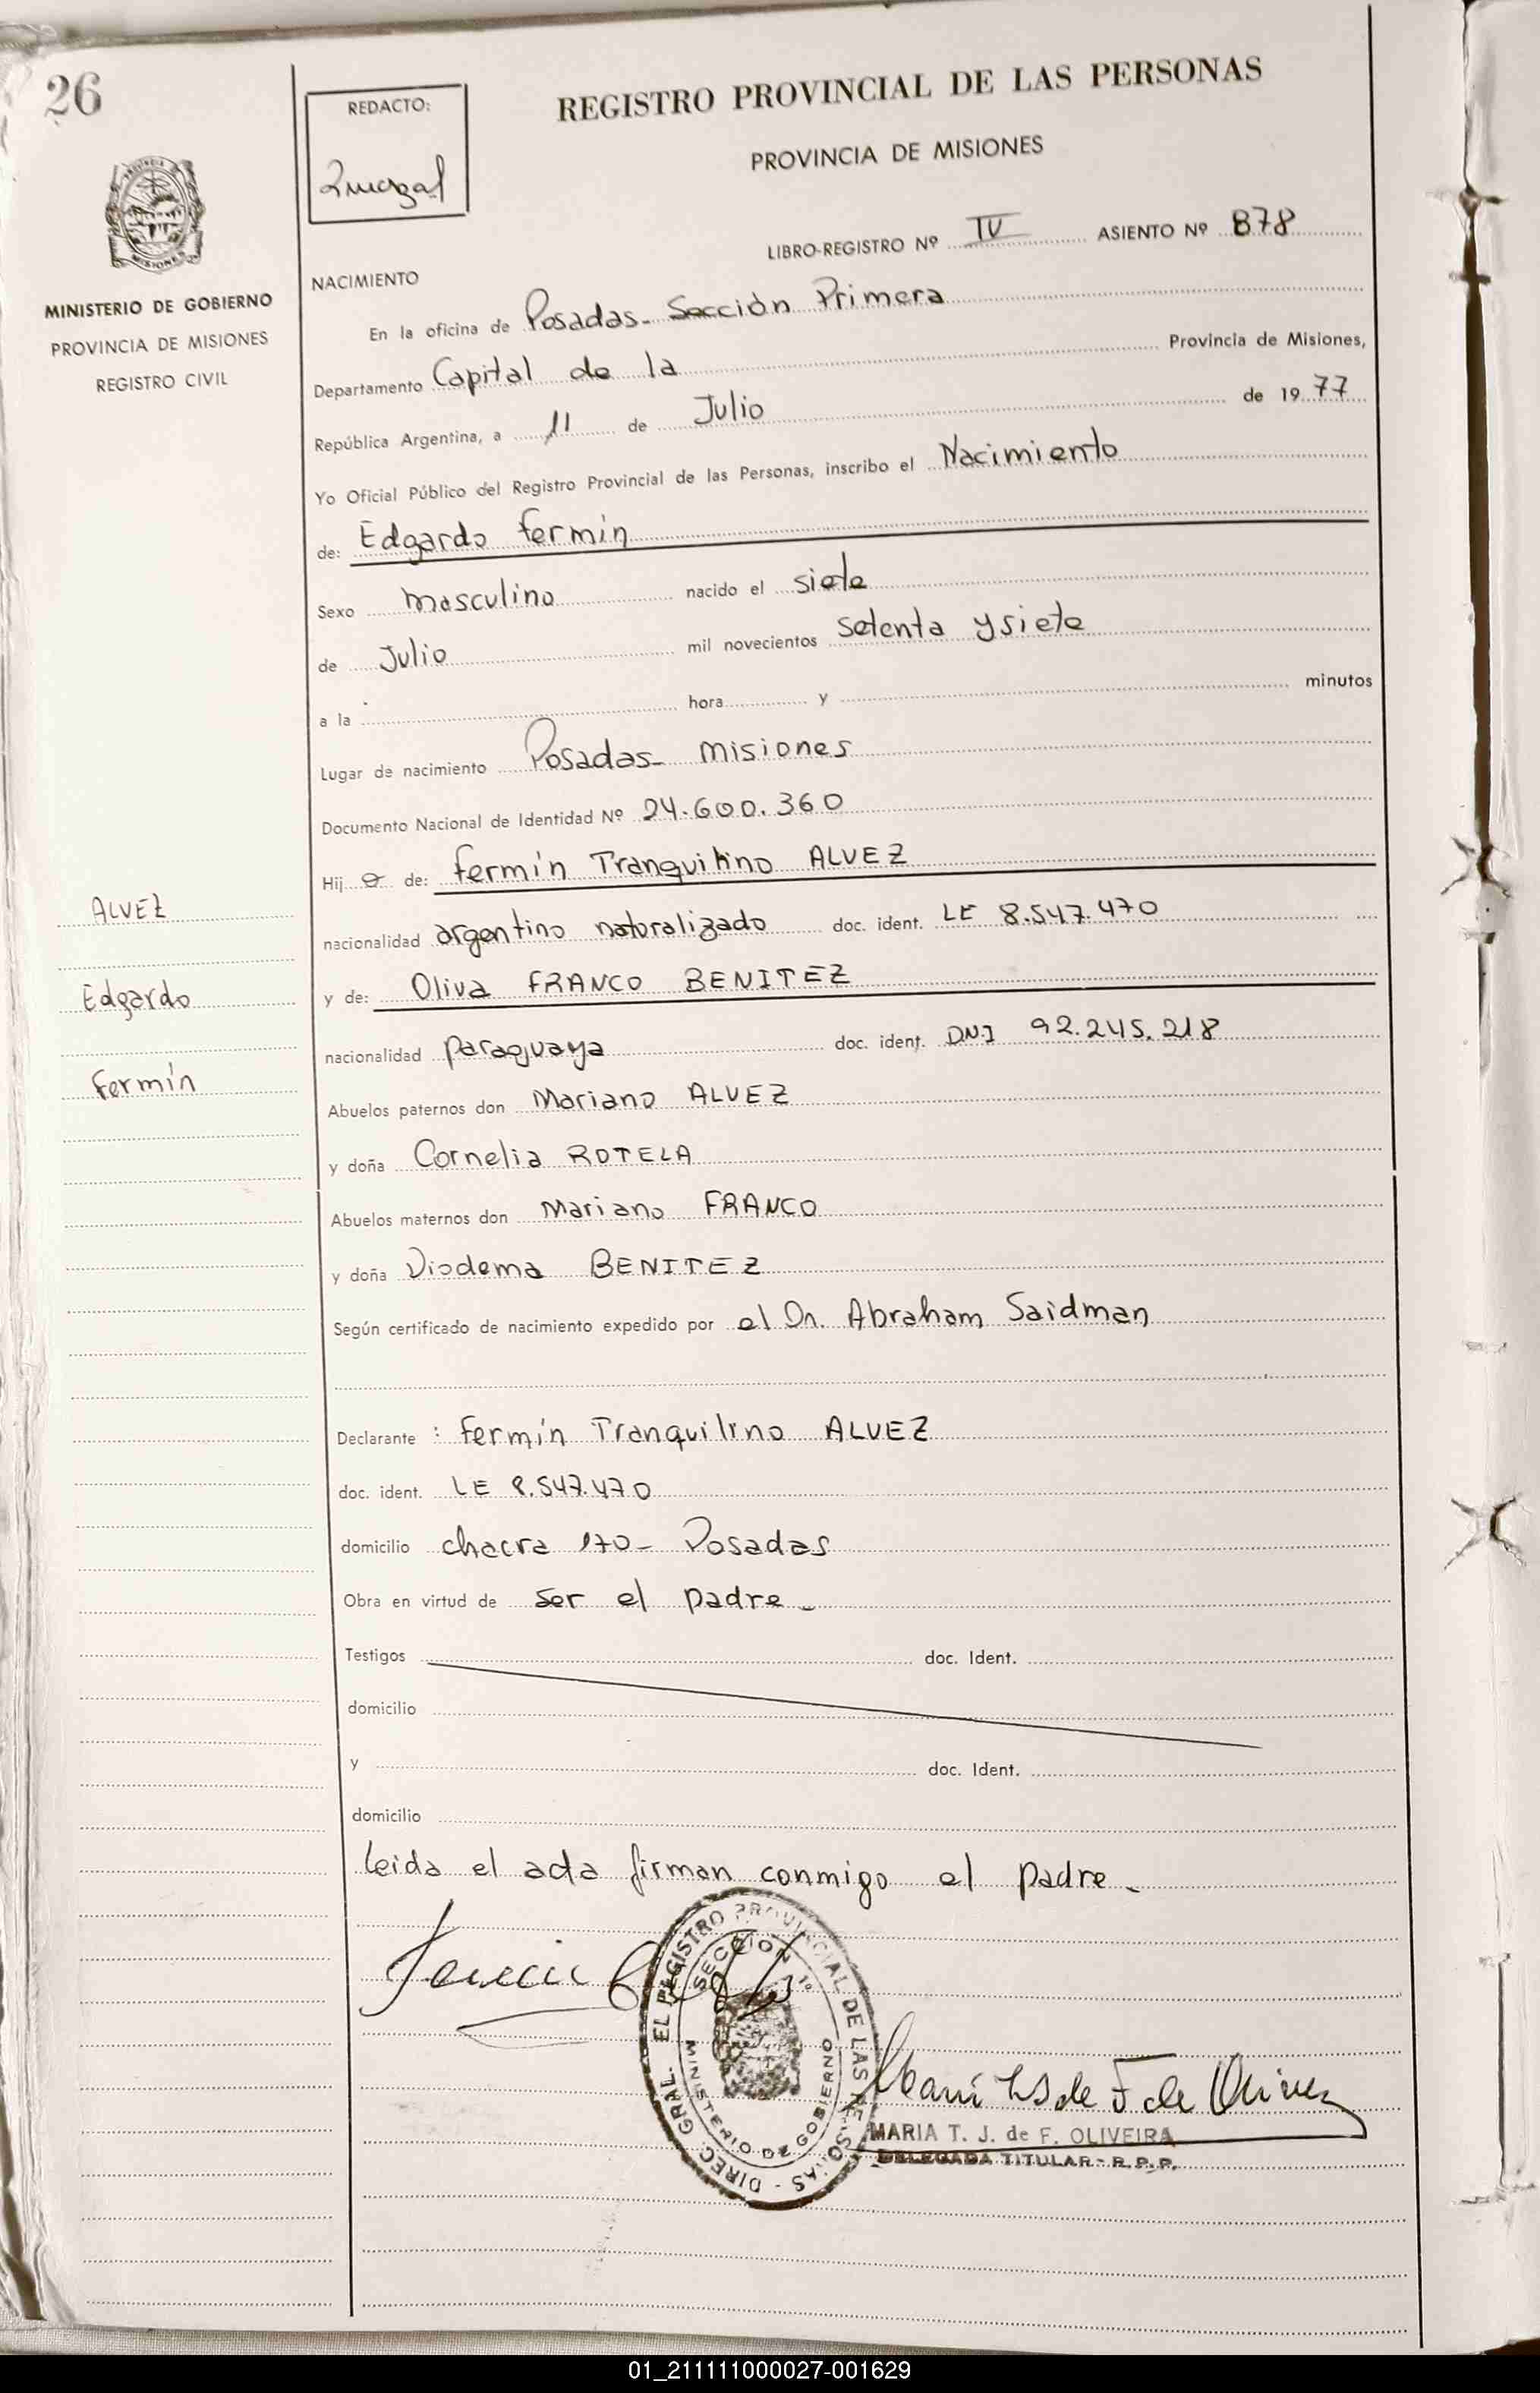 26
REDACTO:
REGISTRO PROVINCIAL DE LAS PERSONAS
PROVINCIA DE MISIONES
LIBRO-REGISTRO Nº IV ASIENTO Nº 878
MINISTERIO DE GOBIERNO
PROVINCIA DE MISIONES
REGISTRO CIVIL
NACIMIENTO
En la oficina de Posadas- Sección Primera
Departamento Capital de la Provincia de Misiones,
República Argentina, a 11 de Julio de 1977
Yo Oficial Público del Registro Provincial de las Personas, inscribo el Nacimiento
de: Edgardo Fermín
Sexo masculino nacido el siete
de Julio mil novecientos setenta y siete
a la hora y minutos
Lugar de nacimiento Posadas- Misiones
Documento Nacional de Identidad Nº 24.600.360
Hij o de: Fermín Tranquilino ALVEZ
ALVEZ
nacionalidad argentino naturalizado doc. ident. LE 8.547.470
Edgardo
y de: Oliva FRANCO BENITEZ
nacionalidad paraguaya doc. ident. DNI 92.245.218
Fermín
Abuelos paternos don Mariano ALVEZ
y doña Cornelia ROTELA
Abuelos maternos don Mariano FRANCO
y doña Diodema BENITEZ
Según certificado de nacimiento expedido por el Dr. Abraham Saidman
Declarante : Fermín Tranquilino ALVEZ
doc. ident. LE 8.547.470
domicilio chacra 170- Posadas
Obra en virtud de ser el padre-
Testigos doc. Ident.
domicilio
y doc. Ident.
domicilio
Leida el acta firman conmigo el padre-
DIREC. GRAL. EL REGISTRO PROVINCIAL DE LAS PERSONAS
SECCION 1º
MINISTERIO DE GOBIERNO
MARIA T. J. de F. OLIVEIRA
DELEGADA TITULAR - R.P.P.
01_211111000027-001629